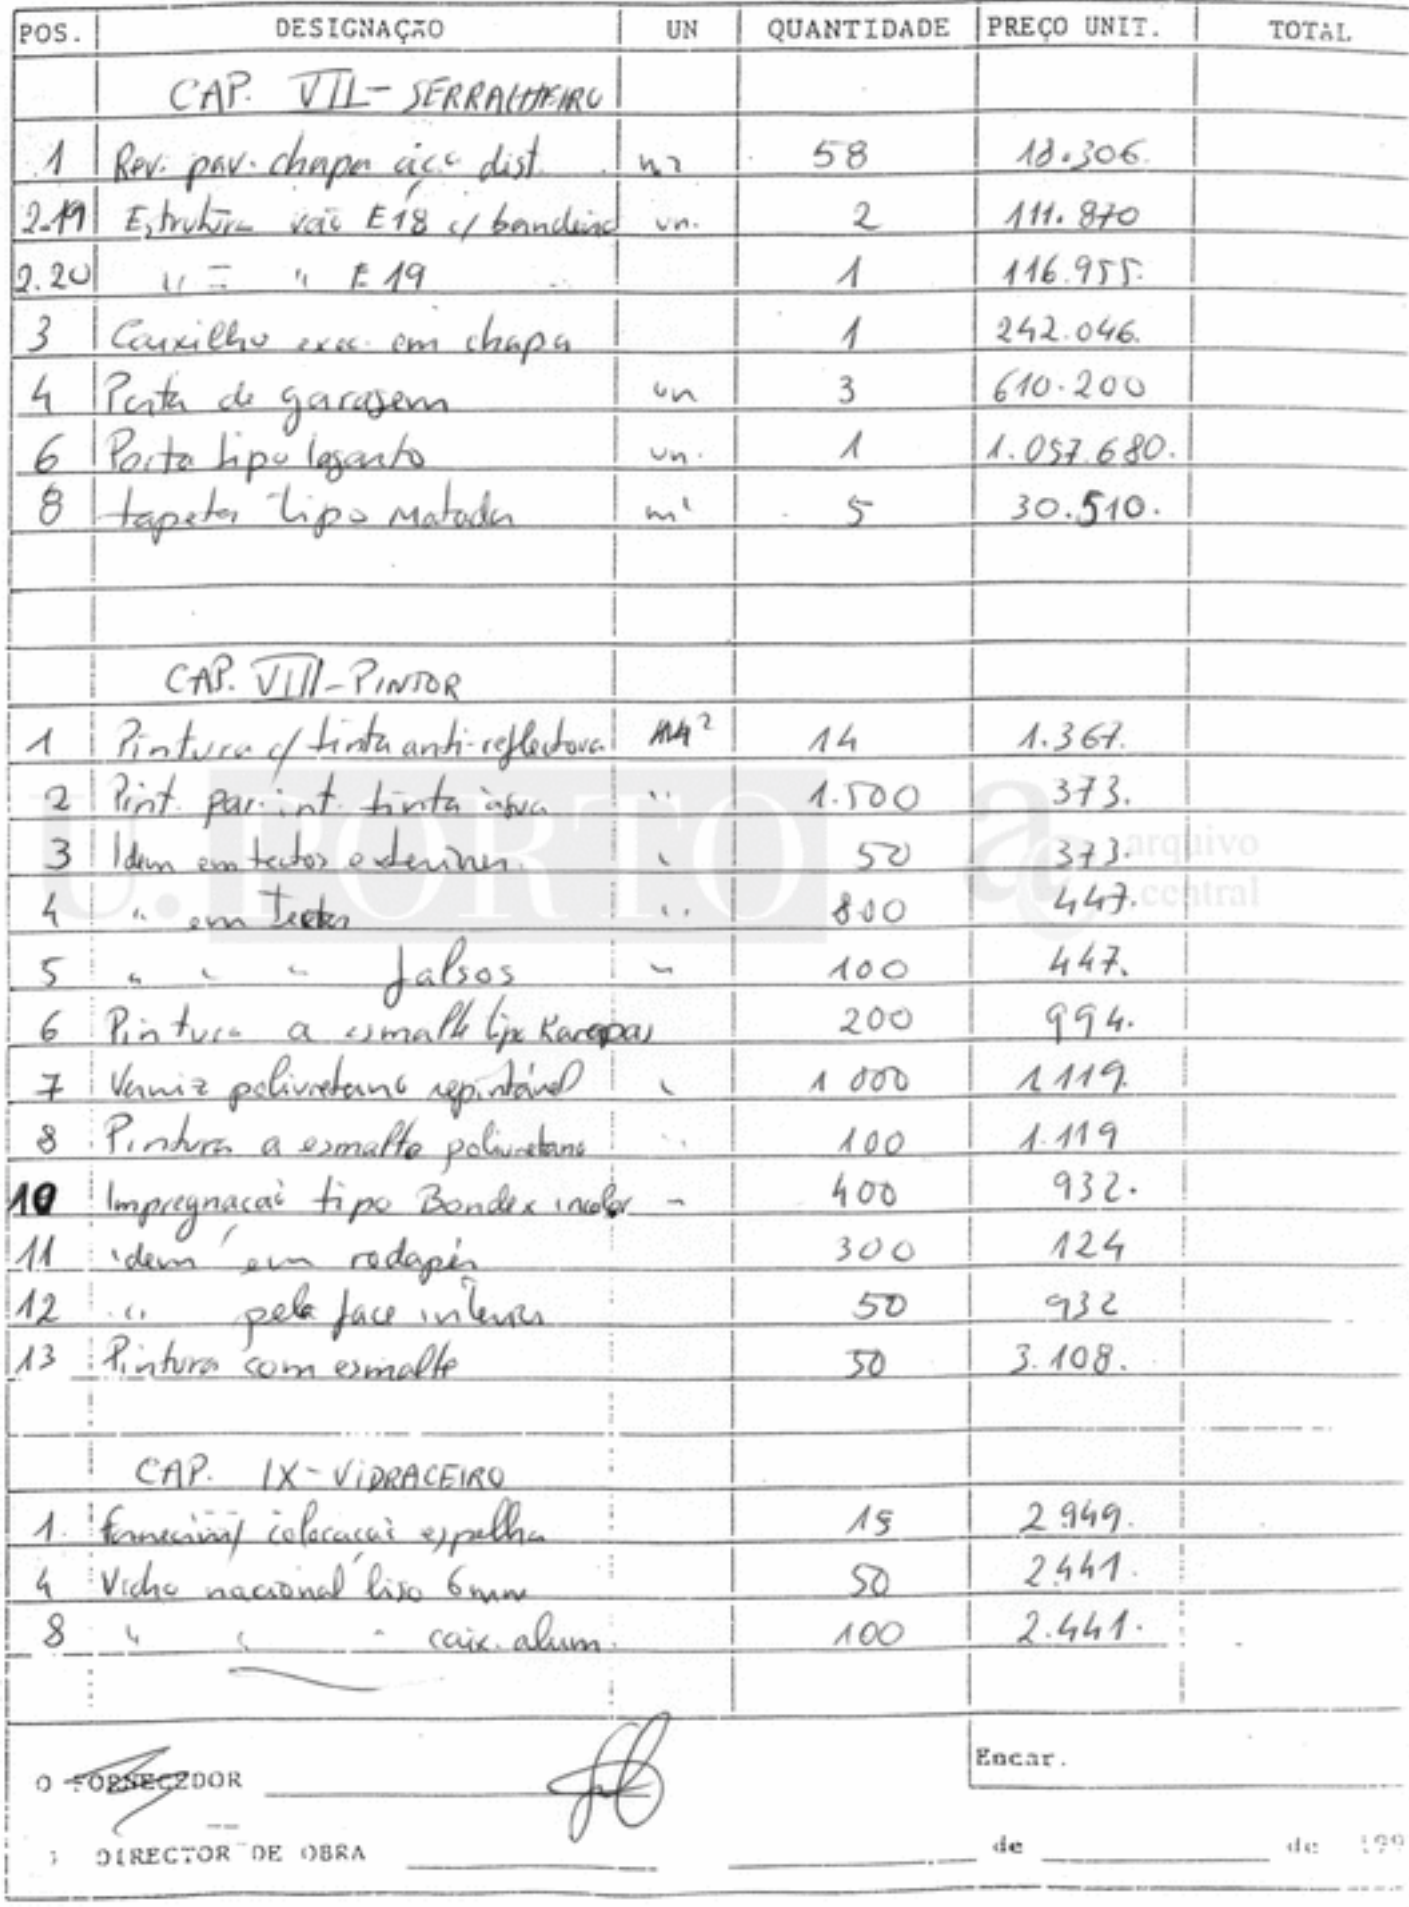 POS. DESIGNAÇÃO UN QUANTIDADE PREÇO UNIT. TOTAL
CAP. VII - SERRALHEIRO
1 Rev. pav. chapa aço dist. m2 58 18.306.
2.19 Estrutura vão E18 c/ bandeira un. 2 111.870
2.20 " = " E19 1 116.955.
3 Caixilho exec. em chapa 1 242.046.
4 Porta de garagem un 3 610.200
6 Porta tipo lagarto un. 1 1.057.680.
8 tapetes tipo Matador m² 5 30.510.
CAP. VIII - PINTOR
1 Pintura c/ tinta anti-reflectora M² 14 1.367.
2 Pint. par. int. tinta água " 1.500 373.
3 Idem em tectos exteriores. " 50 373.
4 " em tectos " 800 447.
5 " " " falsos " 100 447.
6 Pintura a esmalte tipo Karapas 200 994.
7 Verniz poliuretano repintável " 1 000 1.119.
8 Pintura a esmalte poliuretano " 100 1.119
10 Impregnação tipo Bondex incolor " 400 932.
11 idem em rodapés 300 124
12 " pela face interior 50 932
13 Pintura com esmalte 50 3.108.
CAP. IX - VIDRACEIRO
1. Fornecim/ colocação espelha 15 2.949.
4 Vidro nacional liso 6mm 50 2.441.
8 " " " caix. alum. 100 2.441.
U. PORTO ac arquivo central
O FORNECEDOR
Encar.
DIRECTOR DE OBRA de de 199